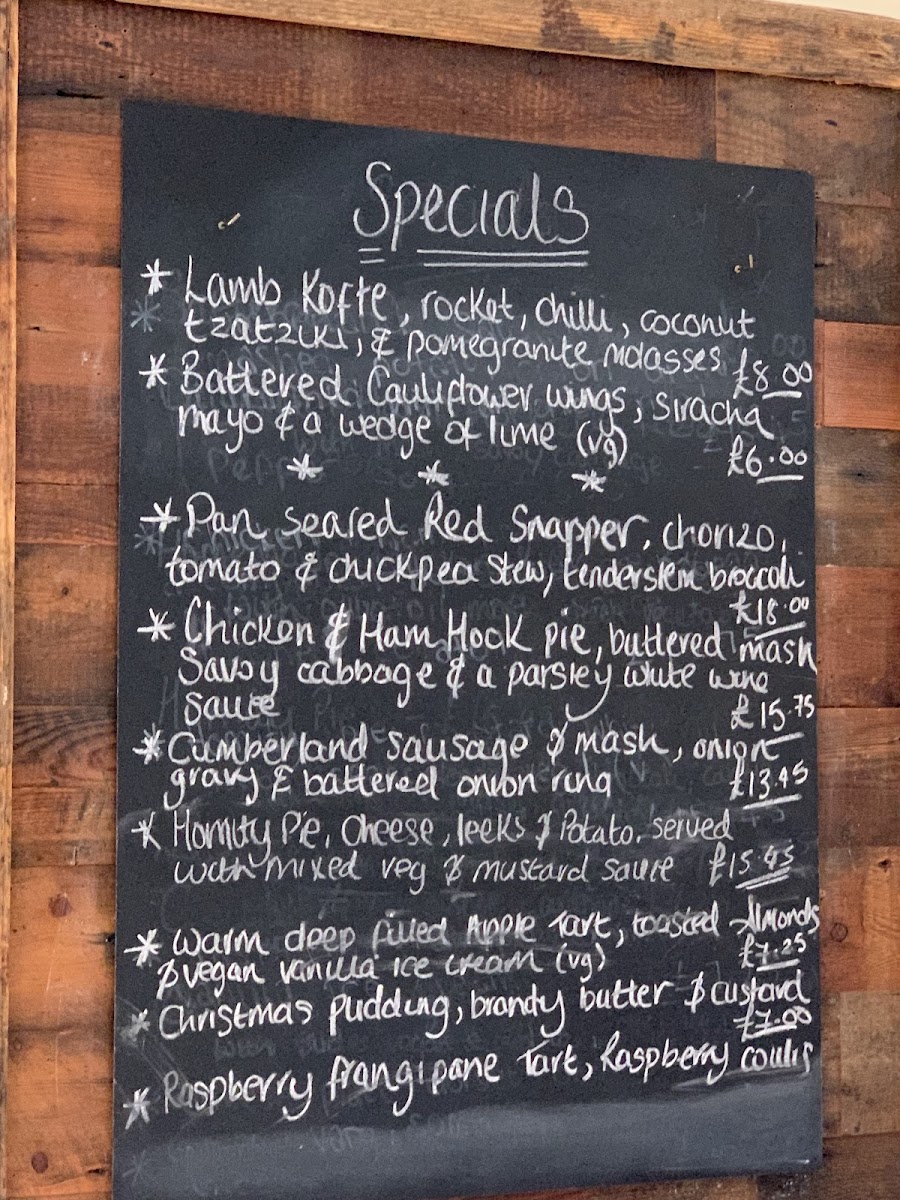 Specials
* Lamb Kofte, rocket, chilli, coconut
tzatziki, & pomegranite molasses £8.00
* Battered Cauliflower wings, siracha
mayo & a wedge of lime (vg) £6.00
* * *
* Pan seared Red Snapper, chorizo,
tomato & chickpea stew, tenderstem broccoli
£18.00
* Chicken & Ham Hock pie, buttered mash
Savoy cabbage & a parsley white wine
sauce £15.75
* Cumberland sausage & mash, onion
gravy & battered onion ring £13.45
* Homity Pie, Cheese, leeks & Potato. served
with mixed veg & mustard sauce £15.45
* Warm deep filled Apple Tart, toasted Almonds
& vegan vanilla ice cream (vg) £7.25
* Christmas pudding, brandy butter & custard
£7.00
* Raspberry frangipane Tart, Raspberry coulis